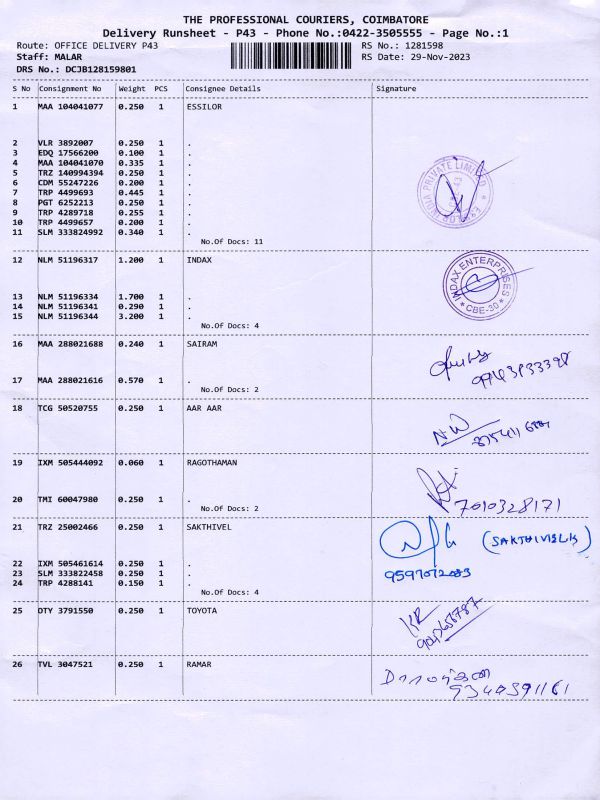 THE PROFESSIONAL COURIERS, COIMBATORE
Delivery Runsheet - P43 - Phone No.:0422-3505555 - Page No.:1
Route: OFFICE DELIVERY P43 RS No.: 1281598
Staff: MALAR RS Date: 29-Nov-2023
DRS No.: DCJB128159801
S No Consignment No Weight PCS Consignee Details Signature
1 MAA 104041077 0.250 1 ESSILOR
2 VLR 3892007 0.250 1 .
3 EDQ 17566200 0.100 1 .
4 MAA 104041070 0.335 1 .
5 TRZ 140994394 0.250 1 .
6 CDM 55247226 0.200 1 .
7 TRP 4499693 0.445 1 .
8 PGT 6252213 0.250 1 .
9 TRP 4289718 0.255 1 .
10 TRP 4499657 0.200 1 .
11 SLM 333824992 0.340 1 .
No.Of Docs: 11
INDIA PRIVATE LIMITED
12 NLM 51196317 1.200 1 INDAX
INDAX ENTERPRISES
* CBE-30 *
13 NLM 51196334 1.700 1 .
14 NLM 51196341 0.290 1 .
15 NLM 51196344 3.200 1 .
No.Of Docs: 4
16 MAA 288021688 0.240 1 SAIRAM
17 MAA 288021616 0.570 1 .
No.Of Docs: 2
18 TCG 50520755 0.250 1 AAR AAR
19 IXM 505444092 0.060 1 RAGOTHAMAN
7010328171
20 TMI 60047980 0.250 1 .
No.Of Docs: 2
21 TRZ 25002466 0.250 1 SAKTHIVEL
(SAKTHIVEL.K)
22 IXM 505461614 0.250 1 .
23 SLM 333822458 0.250 1 .
24 TRP 4288141 0.150 1 .
No.Of Docs: 4
25 OTY 3791550 0.250 1 TOYOTA
26 TVL 3047521 0.250 1 RAMAR